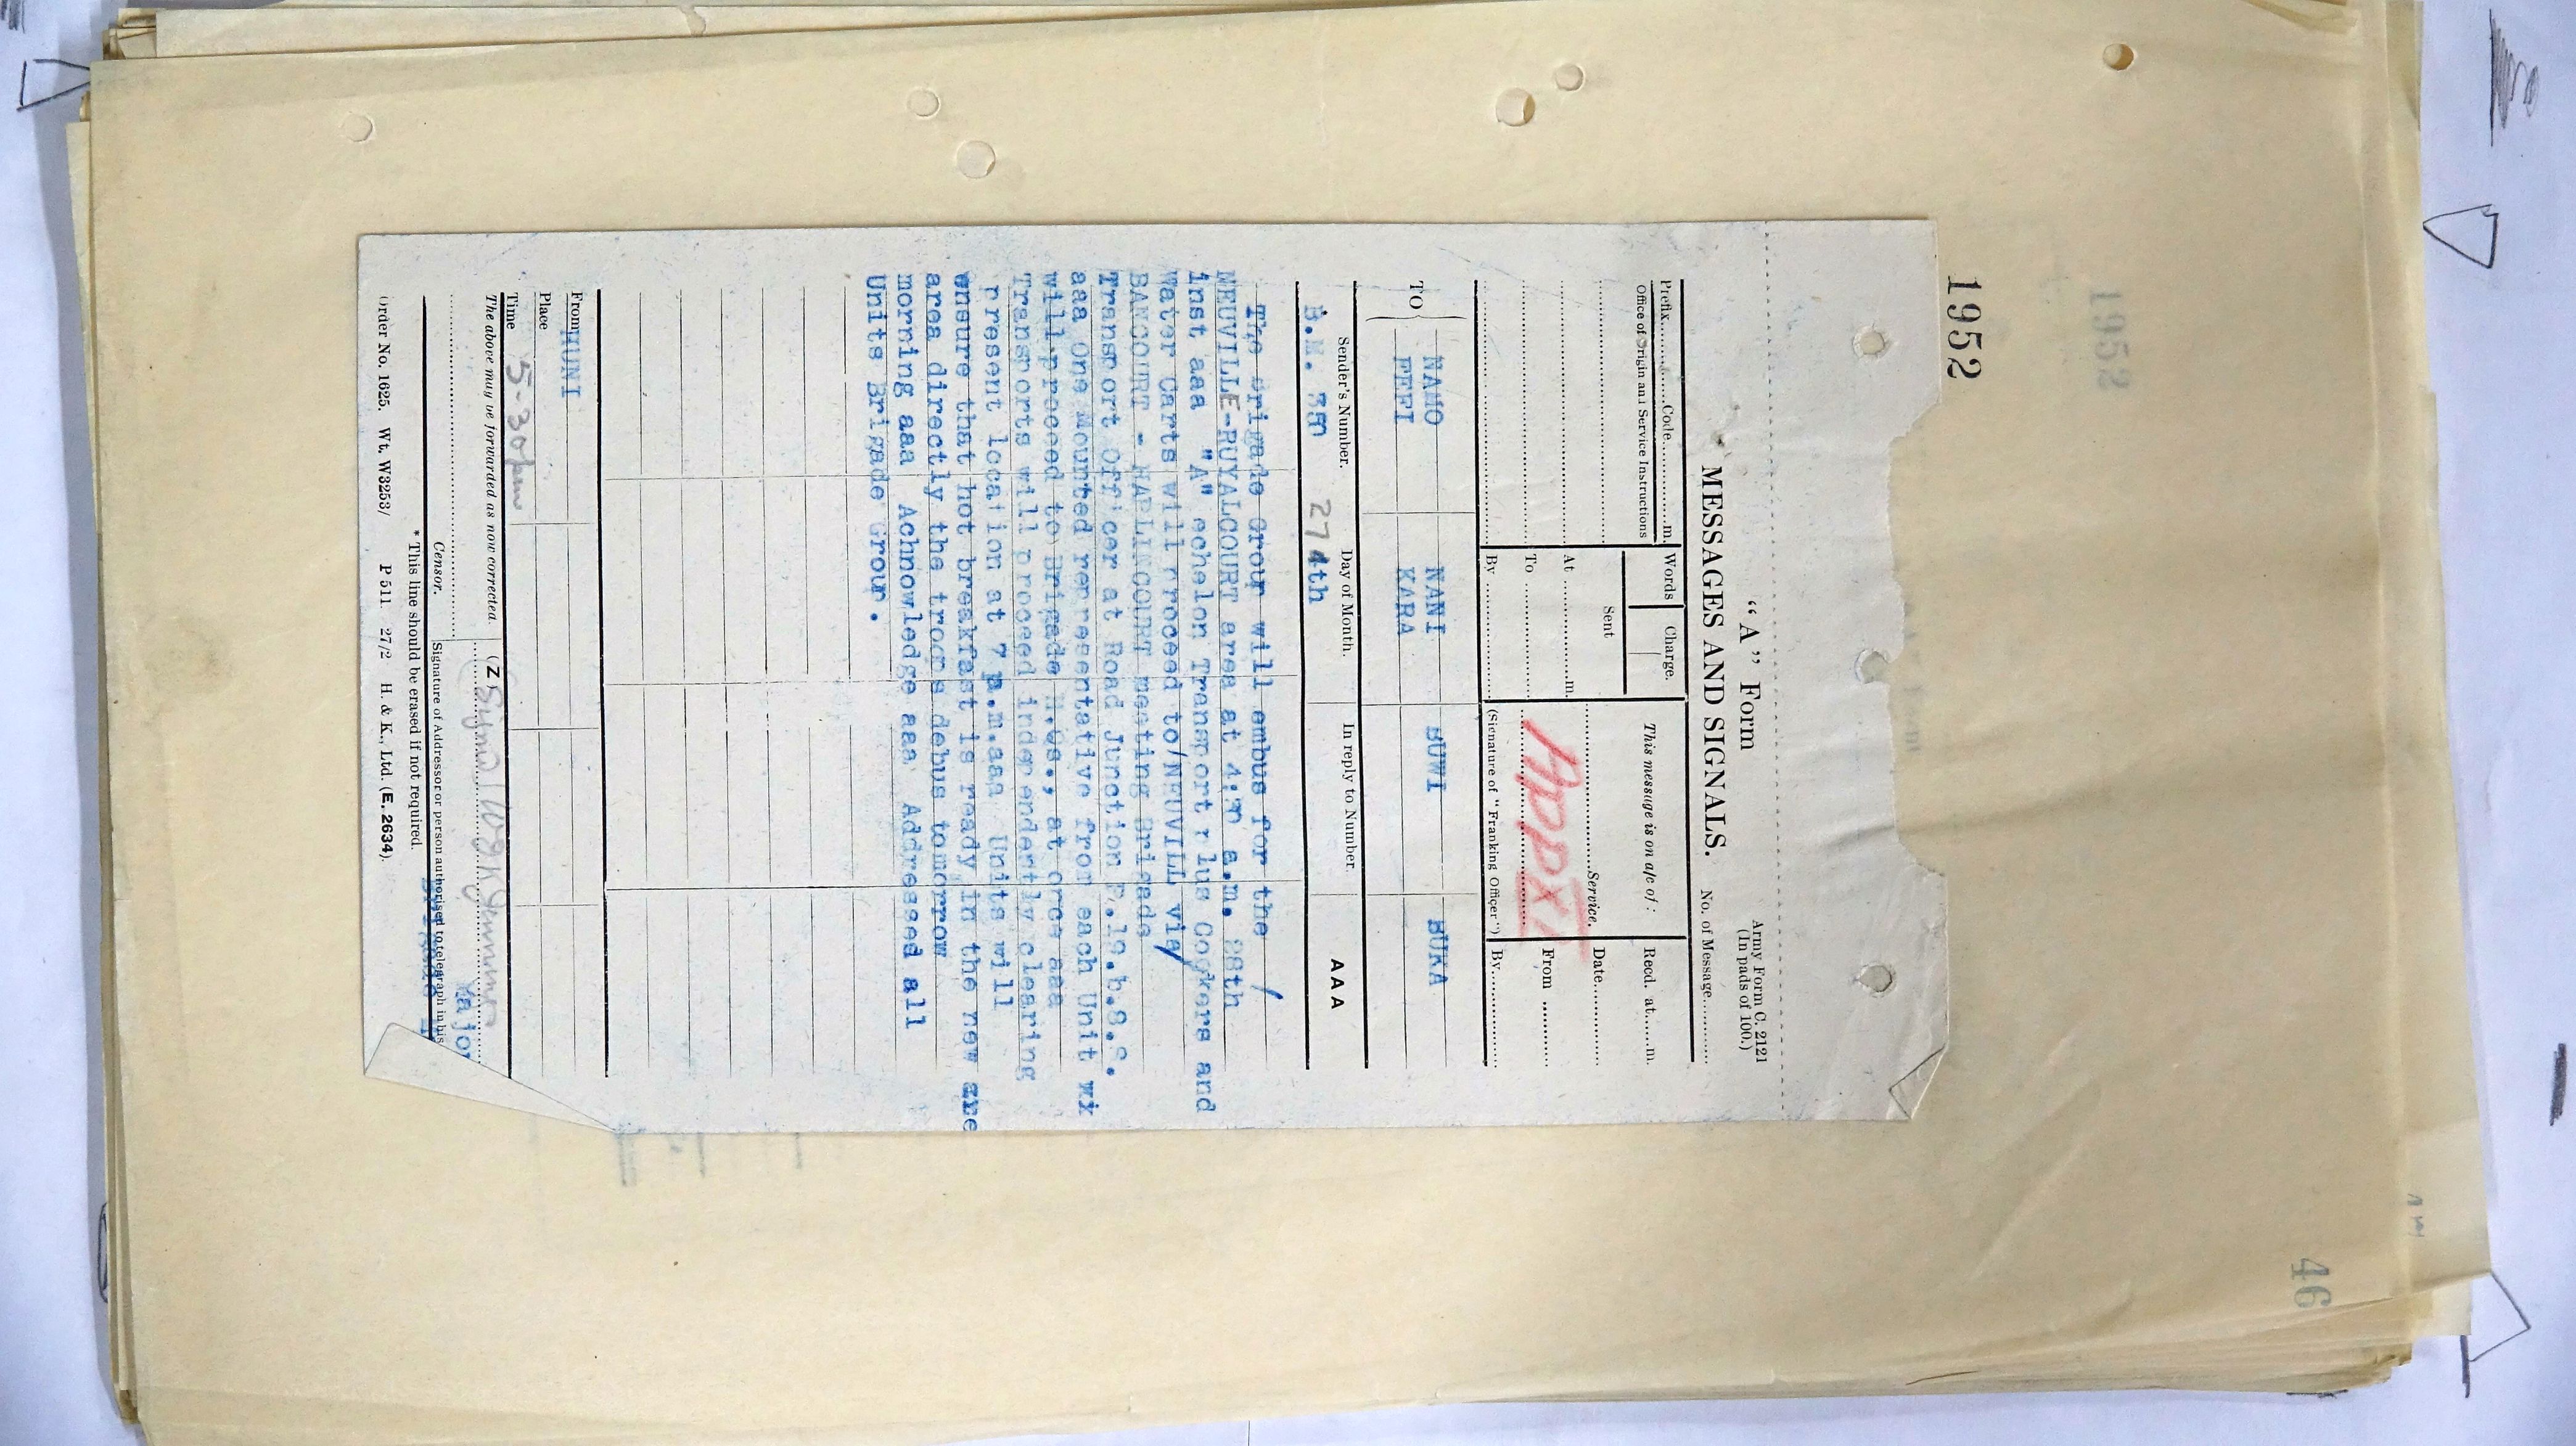 1952
"A" Form
Army Form C. 2121
(In pads of 100.)
MESSAGES AND SIGNALS.
No. of Message
Prefix Code m.
Office of Origin and Service Instructions
Words Charge.
Sent
At m.
To
By
This message is on a/c of:
Service.
Appx
(Signature of "Franking Officer")
Recd. at m.
Date
From
By
TO
NAMO NANI BUWI BUKA
FEFI KARA
Sender's Number. Day of Month. In reply to Number. AAA
B.M. 27 4th
The Brigade Group will embus for the
NEUVILLE-RUYALCOURT area at a.m. 28th
inst aaa "A" echelon Transport plus Cookers and
Water Carts will proceed to/NEUVILL via/
BANCOURT - HAPLINCOURT meeting Brigade
Transport Officer at Road Junction
aaa One Mounted representative from each Unit wi
will proceed to Brigade H.Qs., at once aaa
Transports will proceed independently clearing
present location at 7 p.m.aaa Units will
ensure that hot breakfast is ready in the new are
area directly the troops debus tomorrow
morning aaa Achnowledge aaa Addressed all
Units Brigade Group.
From HUNI
Place
Time 5-30pm
The above may be forwarded as now corrected (Z
Major
Censor. Signature of Addressor or person authorised to telegraph in his
* This line should be erased if not required.
Order No. 1625. Wt. W3253/ P 511. 27/2 H. & K., Ltd. (E. 2634).
46